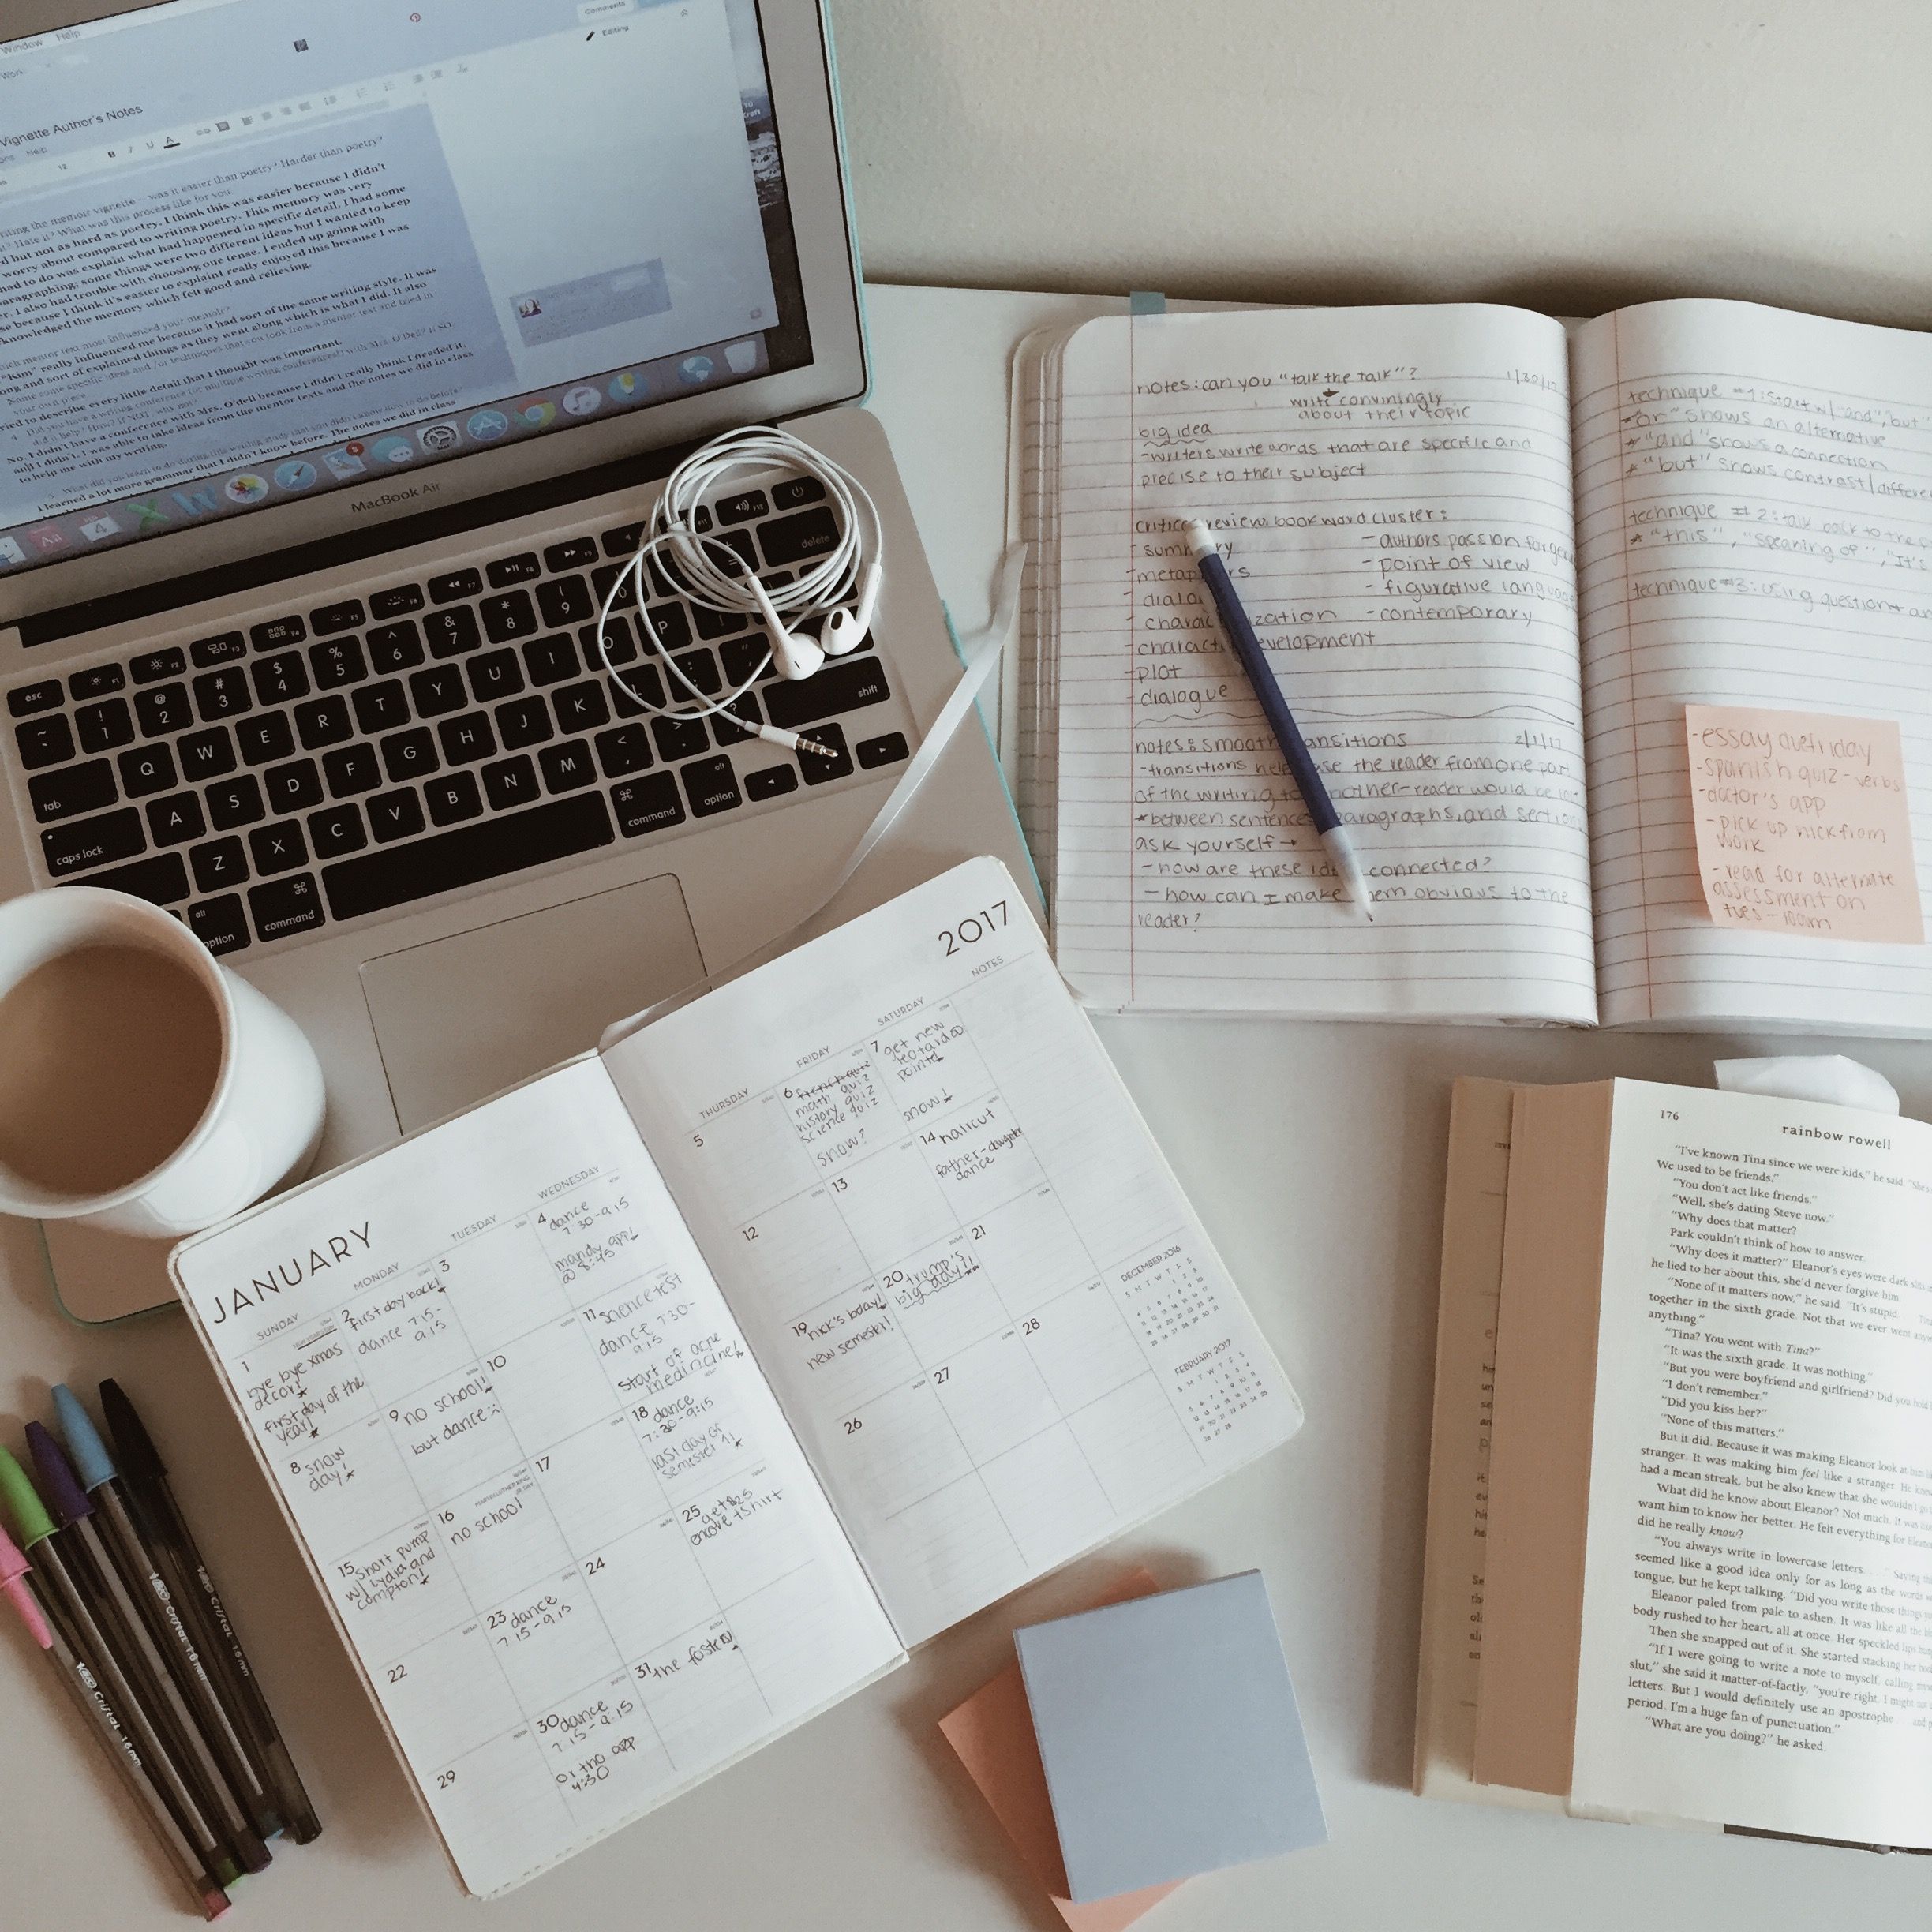 Window Help
Comments
Editing
Vignette Author's Notes
Help
12
B I U A
riting the memoir vignette – was it easier than poetry? Harder than poetry?
Hate it? What was this process like for you
but not as hard as poetry. I think this was easier because I didn't
worry about compared to writing poetry. This memory was very
had to do was explain what had happened in specific detail. I had some
paragraphing; some things were two different ideas but I wanted to keep
I also had trouble with choosing one tense. I ended up going with
because I think it's easier to explain! really enjoyed this because I was
knowledged the memory which felt good and relieving.
mentor text most influenced your memoir?
"Kim" really influenced me because it had sort of the same writing style. It was
and sort of explained things as they went along which is what I did. It also
ried to describe every little detail that I thought was important.
Name some specific ideas and /or techniques that you took from a mentor text and tried in
your own piece
Did you have a writing conference (or multiple writing conferences!) with Mrs. O'Dell? If SO,
did it help? How? If NOT, why not?
No, I didn't have a conference with Mrs. O'dell because I didn't really think I needed it
I was able to take ideas from the mentor texts and the notes we did in class
to help me with my writing.
What did you learn to do during this writing study that you didn't know how to do before?
I learned a lot more grammar that I didn't know before. The notes we did in class
MacBook Air
esc F1 F2 F3 F4 F5 F7
~ ! 1 @ 2 # 3 $ 4 % 5 ^ 6 & 7 * 8 ( 9 delete
tab Q W E R T Y U I O P
caps lock A S D F G H J K L : ;
Z X C V B N M < , > . ? shift
alt option ⌘ command ⌘ command alt option
notes: can you "talk the talk"? 1/30/17
write convincingly
about their topic
big idea
-writers write words that are specific and
precise to their subject
review book word cluster:
-authors passion for
-point of view
-figurative
-contemporary
-plot
-dialogue
notes: smooth transitions 2/1/17
-transitions the reader from one part
of the writing to another-reader would be
*between sentences, paragraphs, and
ask yourself →
-how are these connected?
-how can I make them obvious to the
reader?
technique #1: start w/ "and", but
*"or" shows an alternative
*"and" shows a connection
*"but" shows contrast/
technique #2: talk back to the
*"this", "speaking of", "it's
technique #3: using question
-essay due friday
-spanish quiz-verbs
-doctor's app
-pick up nick from
work
-read for alternate
assessment on
tues-10am
JANUARY
2017
SUNDAY MONDAY TUESDAY WEDNESDAY
THURSDAY FRIDAY SATURDAY NOTES
1 bye bye xmas
decor!
first day of the
year!
2 first day back!
dance 7:15-
9:15
3
4 dance
7:30-9:15
mandy app!
@ 8:45
5
6 french quiz
math quiz
history quiz
science quiz
snow?
7 get new
leotard
pointe!
snow!
8 snow
day!
9 no school!
but dance :(
10
11 science test
dance 7:30-
9:15
start of acne
medicine!
12
13
14 haircut
father-daughter
dance
15 short pump
w/ lydia and
compton!
16 MARTIN LUTHER KING JR. DAY
no school
17
18 dance
7:30-9:15
last day of
semester 1!
19 nick's bday!
new semester!
20 trump's
big day?!
21
22
23 dance
7:15-9:15
24
25 get $25
encore tshirt
26
27
28
29
30 dance
7:15-9:15
ortho app
4:30
31 the fosters!
DECEMBER 2016
S M T W T F S
FEBRUARY 2017
S M T W T F S
Cristal 1.6 mm
Cristal 1.6 mm
Cristal 1.6 mm
176
rainbow rowell
"I've known Tina since we were kids," he said. "She's
We used to be friends."
"You don't act like friends."
"Well, she's dating Steve now."
"Why does that matter?
Park couldn't think of how to answer.
"Why does it matter?" Eleanor's eyes were dark
he lied to her about this, she'd never forgive him.
"None of it matters now," he said. "It's stupid.
together in the sixth grade. Not that we ever went
anything."
"Tina? You went with Tina?"
"It was the sixth grade. It was nothing."
"But you were boyfriend and girlfriend? Did you hold
"I don't remember."
"Did you kiss her?"
"None of this matters."
But it did. Because it was making Eleanor look at him
stranger. It was making him feel like a stranger. He knew
had a mean streak, but he also knew that she wouldn't
What did he know about Eleanor? Not much. It was
want him to know her better. He felt everything for Eleanor
did he really know?
"You always write in lowercase letters. . . ." Saying
seemed like a good idea only for as long as the words
tongue, but he kept talking. "Did you write those things
Eleanor paled from pale to ashen. It was like all the
body rushed to her heart, all at once. Her speckled lips
Then she snapped out of it. She started stacking her
"If I were going to write a note to myself, calling
slut," she said it matter-of-factly, "you're right, I might
letters. But I would definitely use an apostrophe . . . and
period. I'm a huge fan of punctuation."
"What are you doing?" he asked.